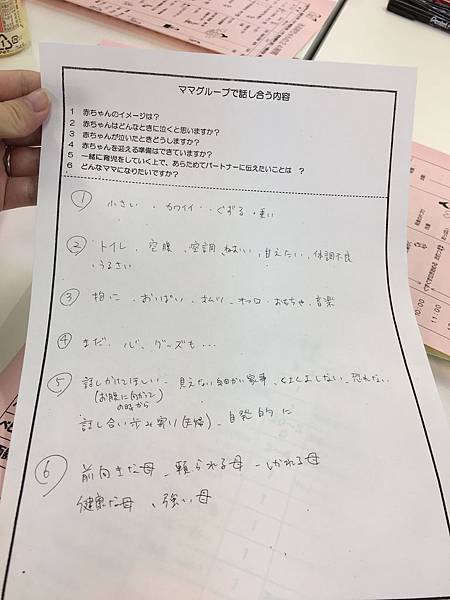 ママグループで話し合う内容
1 赤ちゃんのイメージは?
2 赤ちゃんはどんなときに泣くと思いますか?
3 赤ちゃんが泣いたときどうしますか?
4 赤ちゃんを迎える準備はできていますか?
5 一緒に育児をしていく上で、あらためてパートナーに伝えたいことは ?
6 どんなママになりたいですか?
① 小さい ・カワイイ・・ぐずる・重い
② トイレ 、空腹 、空調、ねむい、甘えたい、体調不良
、うるさい
③ 抱っこ ・おっぱい ・オムツ ・オフロ・おもちゃ・音楽
④ まだ・心、グーズも・・・
⑤ 話しかけてほしい、見えない細かい家事、くよくよしない、恐れない
(お腹に向かって
の時から)
話し合い歩み寄り(夫婦)、自発的に
⑥ 前向きな母、頼られる母、しかれる母
健康な母 、強い母
10:00
11:00